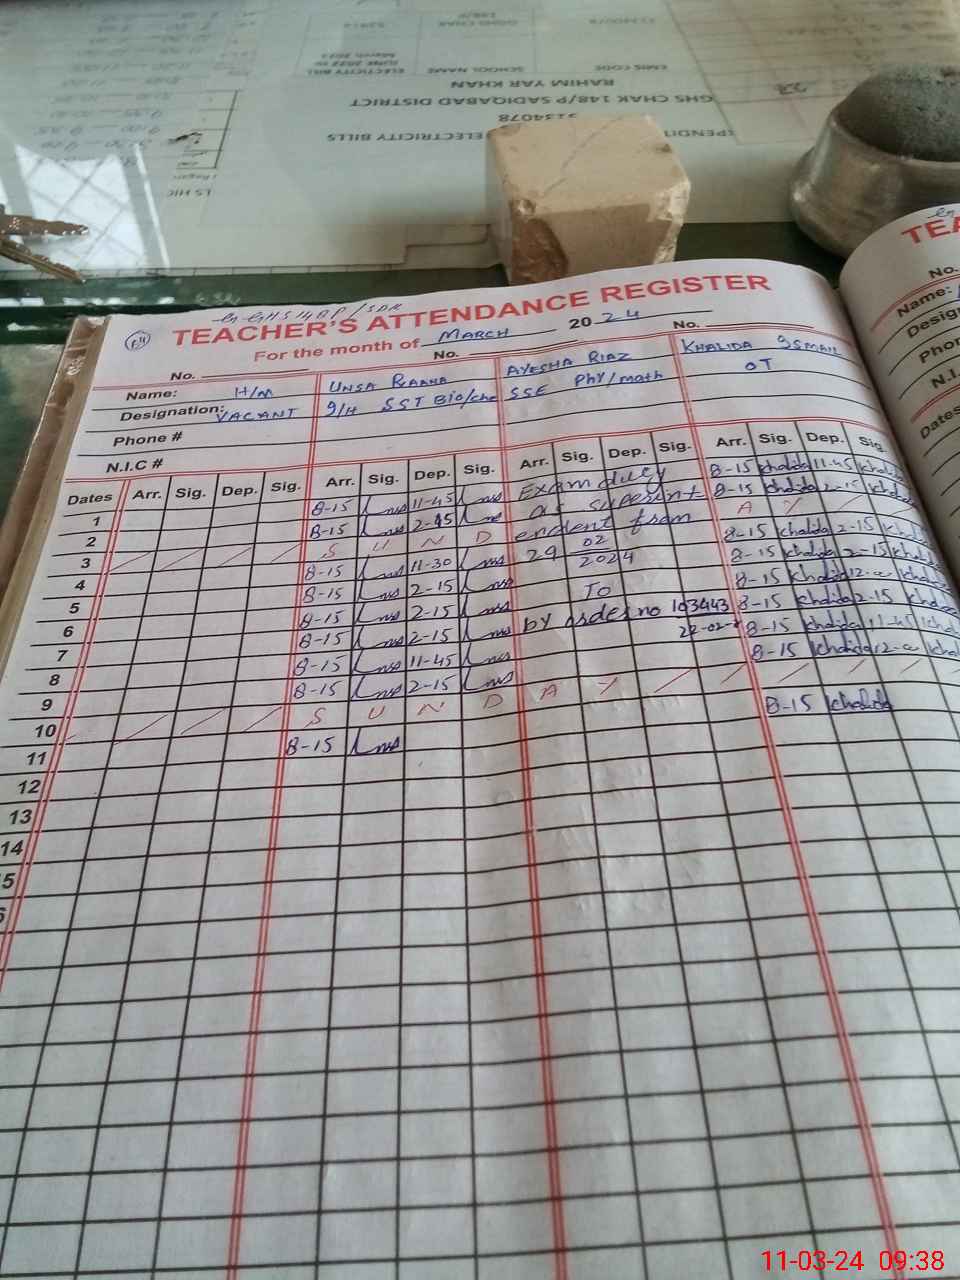 LS HIC
EXPENDIT ELECTRICITY BILLS
31134078
GHS CHAK 148/P SADIQABAD DISTRICT
RAHIM YAR KHAN
EMIS CODE SCHOOL NAME ELECTICITY BILL
JUNE 2022 to
March 2023
TEACHER'S ATTENDANCE REGISTER
For the month of MARCH 2024
No. No. No.
Name: H/M UNSA RAANA AYESHA RIAZ KHALIDA ISMAIL
Designation: VACANT I/H SST Bio/che SSE Phy/math OT
Phone #
N.I.C #
Dates Arr. Sig. Dep. Sig. Arr. Sig. Dep. Sig. Arr. Sig. Dep. Sig. Arr. Sig. Dep. Sig.
1 8-15 Unsa 11-45 Unsa Exam duty 8-15 Khalida 11-45 Khalida
2 8-15 Unsa 2-45 Unsa as superint 8-15 Khalida 2-15 Khalida
3 S U N D endent from A Y
4 8-15 Unsa 11-30 Unsa 29 02 2024 8-15 Khalida 2-15 Khalida
5 8-15 Unsa 2-15 Unsa To 8-15 Khalida 2-15 Khalida
6 8-15 Unsa 2-15 Unsa by order no 103443 8-15 Khalida 12-00 Khalida
7 8-15 Unsa 2-15 Unsa 22-02- 8-15 Khalida 2-15 Khalida
8 8-15 Unsa 11-45 Unsa 8-15 Khalida 11-45 Khalida
9 8-15 Unsa 2-15 Unsa 8-15 Khalida 12-00 Khalida
10 S U N D A Y
11 8-15 Unsa 8-15 Khalida
12
13
14
TEA
No.
Name:
Desig
Phon
N.I.
Dates
11-03-24 09:38